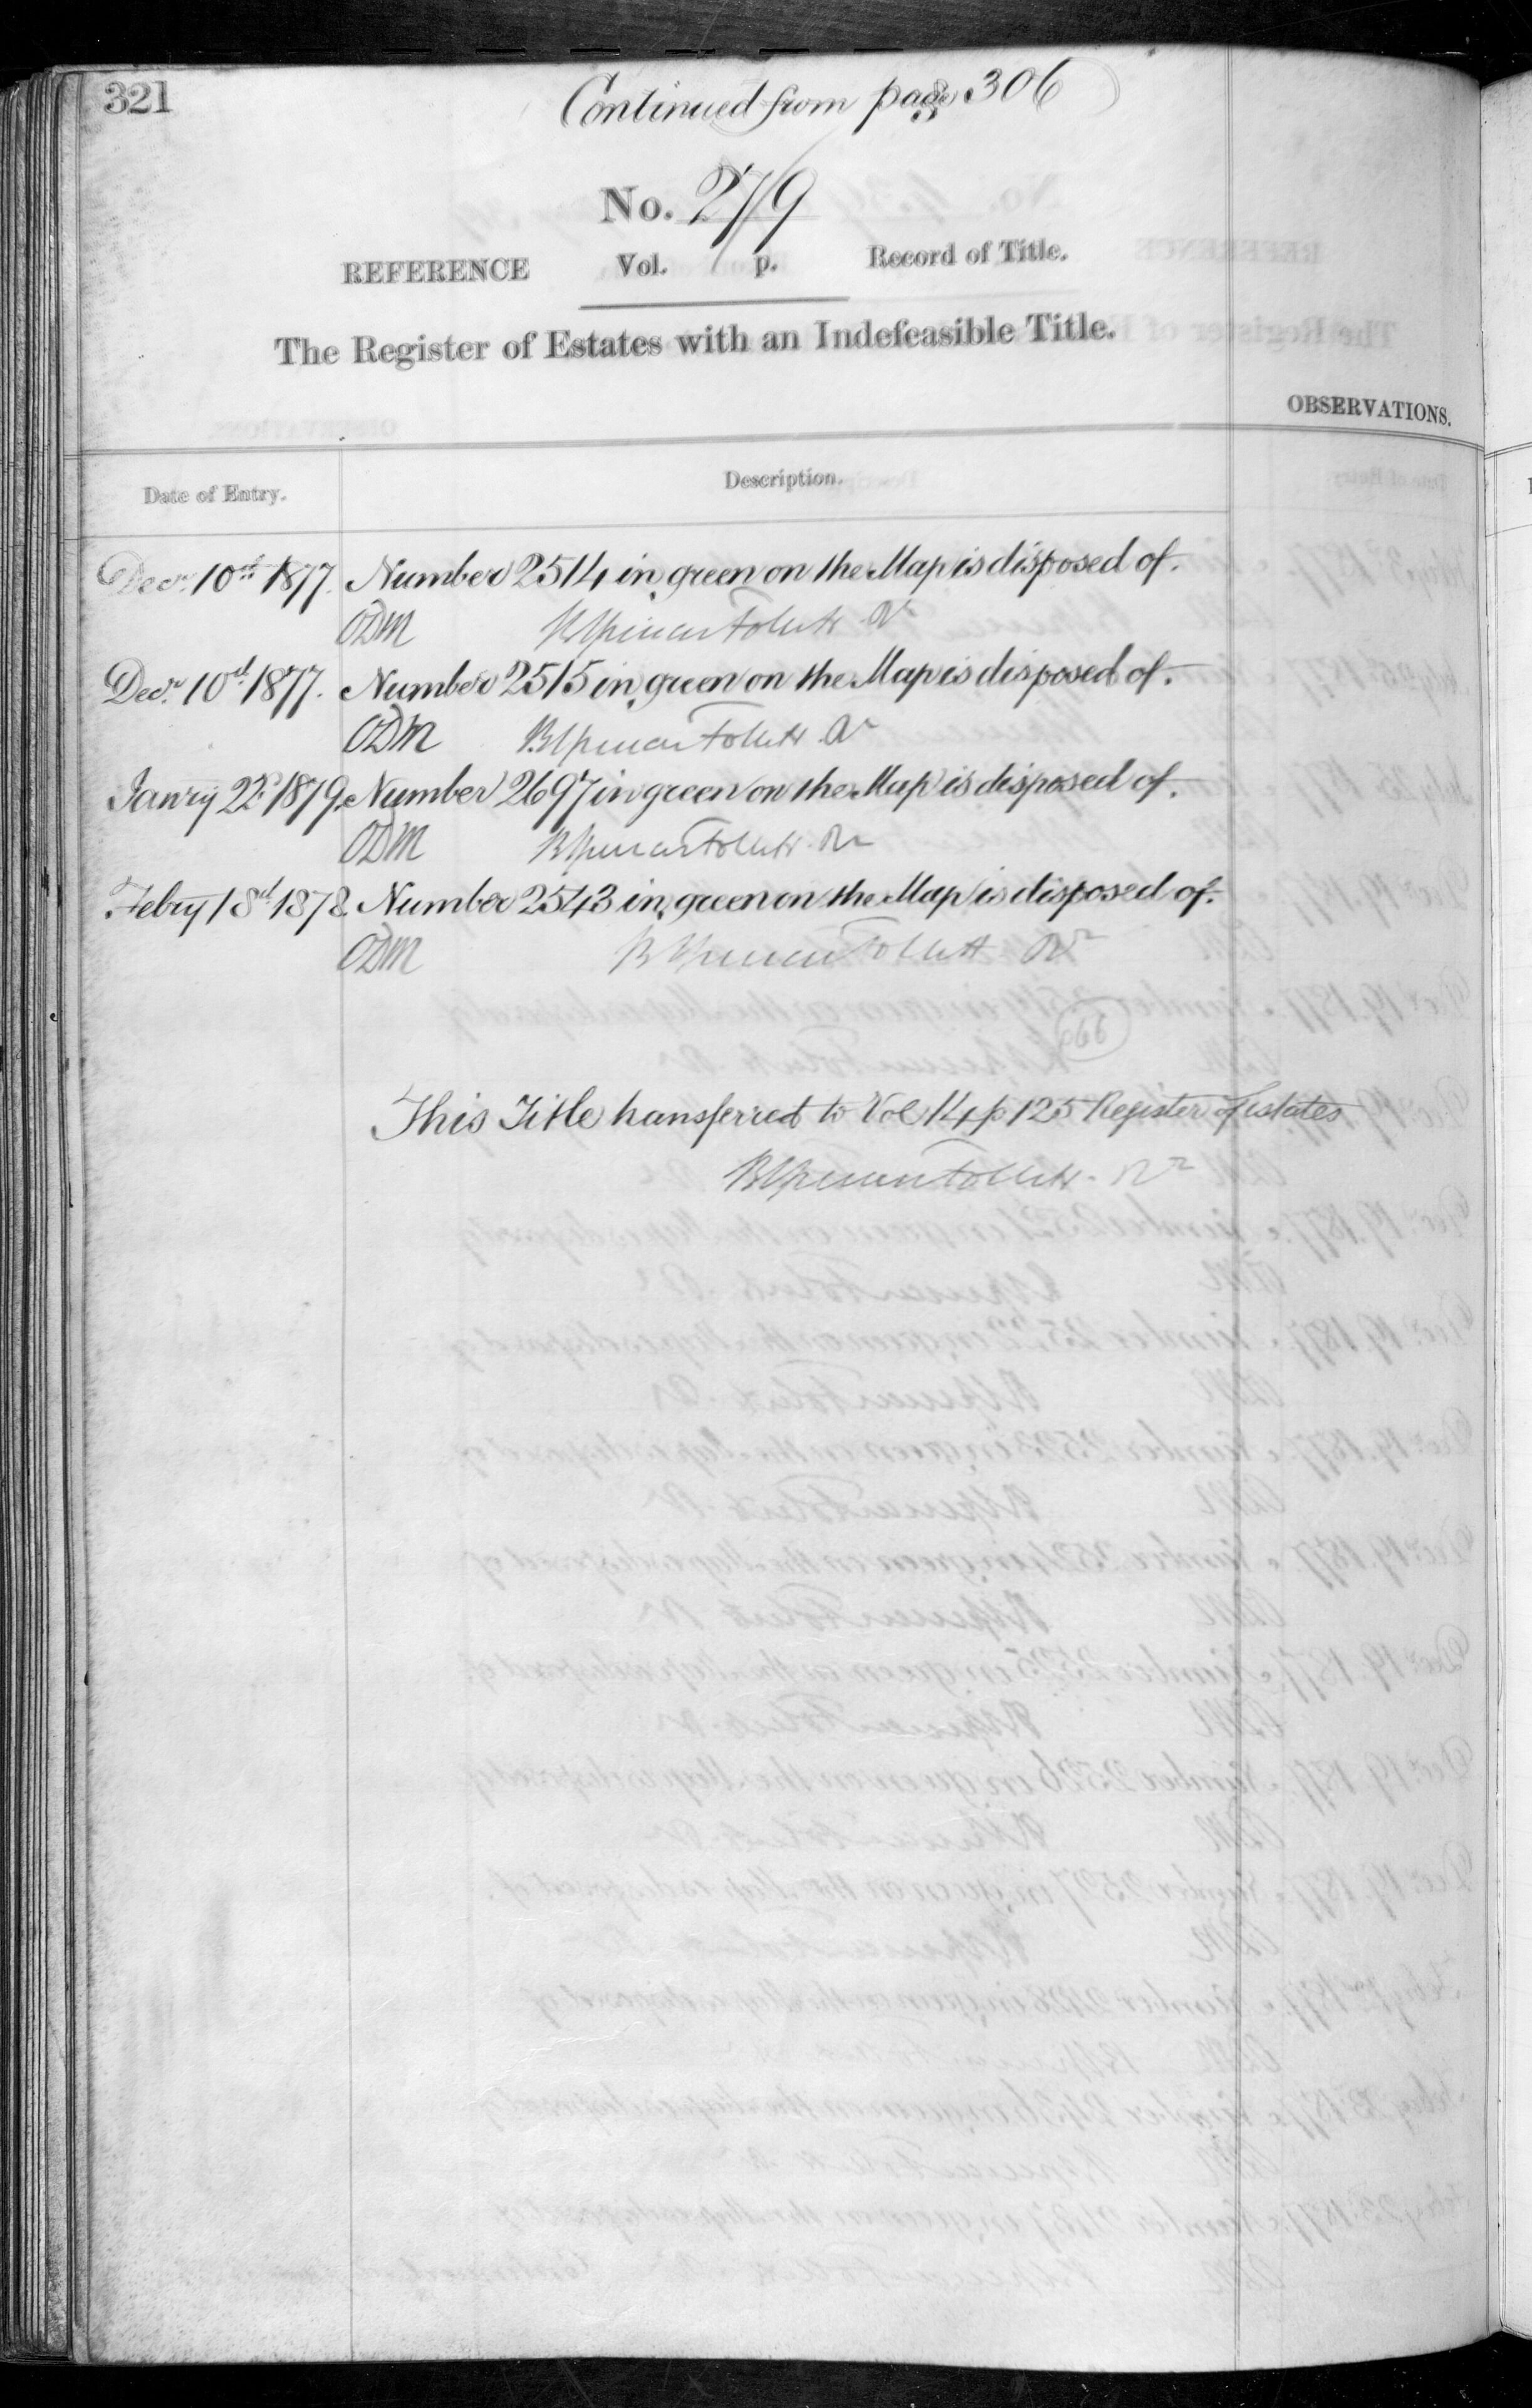 321
Continued from page 306
No. 279
REFERENCE Vol. p. Record of Title.
The Register of Estates with an Indefeasible Title.
OBSERVATIONS.
Date of Entry. Description.
Decr. 10th 1877. Number 2514 in green on the Map is disposed of.
ODM
Decr. 10th 1877. Number 2515 in green on the Map is disposed of.
ODM
Janry 22d 1879. Number 2697 in green on the Map is disposed of.
ODM
Febry 18th 1878. Number 2543 in green on the Map is disposed of.
ODM
This Title transferred to Vol 14 p 125 Register of Estates